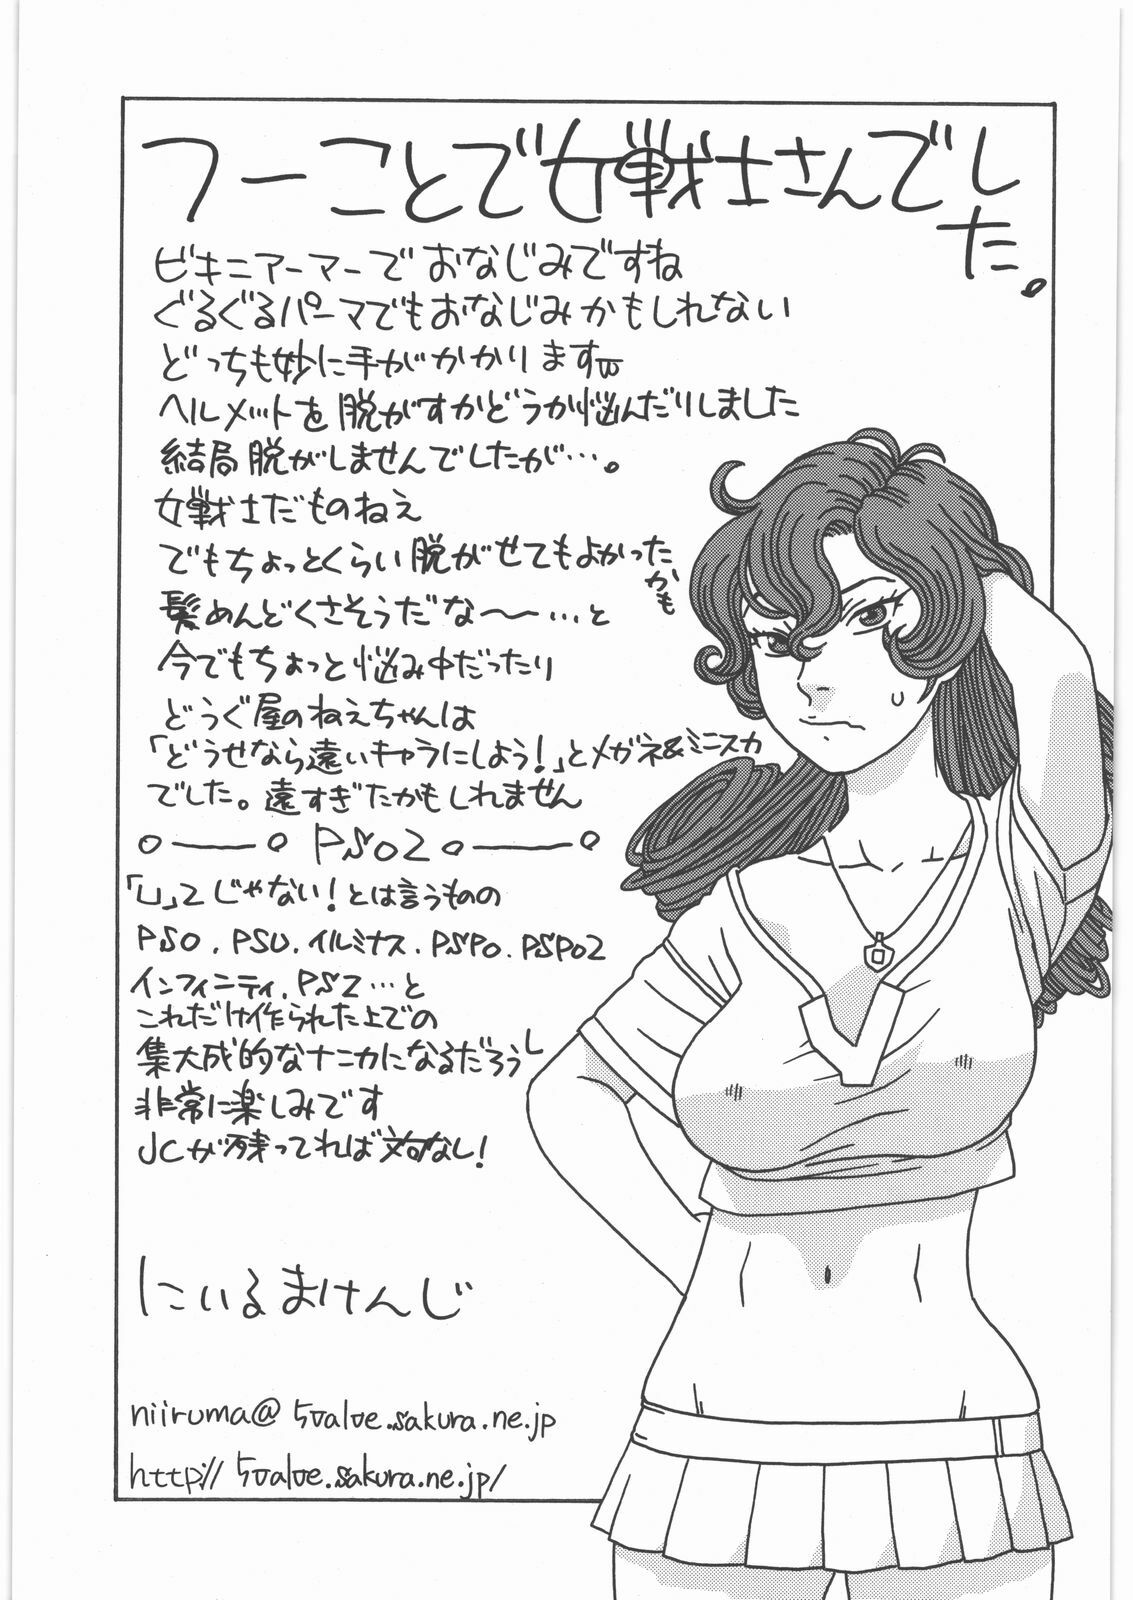 つーことで女戦士さんでした。
ビキニアーマーでおなじみですね
ぐるぐるパーマでもおなじみかもしれない
どっちも妙に手がかかりますw
ヘルメットを脱がすかどうか悩んだりしました
結局脱がしませんでしたが…。
女戦士だものねえ
でもちょっとくらい脱がせてもよかったかも
髪めんどくさそうだな〜…と
今でもちょっと悩み中だったり
どうぐ屋のねえちゃんは
「どうせなら遠いキャラにしよう!」とメガネ&ミニスカ
でした。遠すぎたかもしれません
PSO2
「U」2じゃない!とは言うものの
PSO.PSU.イルミナス.PSPO.PSPO2
インフィニティ.PSZ…と
これだけ作られた上での
集大成的なナニカになるだろうし
非常に楽しみです
JCが残ってれば文句なし!
にいるまけんじ
niiruma@5value.sakura.ne.jp
http://5value.sakura.ne.jp/